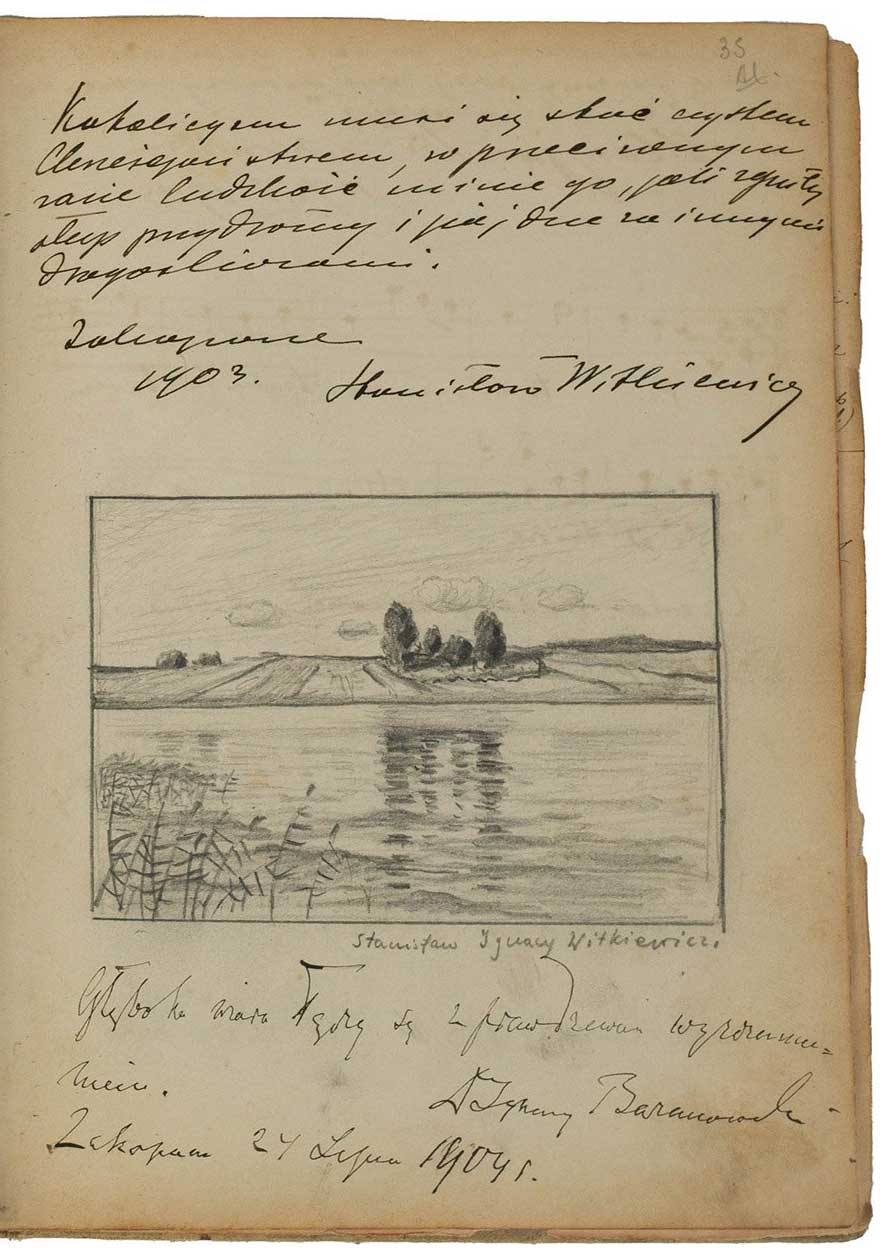 35
Katolicyzm musi się stać czystem
Chrześcijaństwem, w przeciwnym
razie ludzkość minie go, jak zgniły
słup przydrożny i pójdzie za innymi
drogoskazami.
Zakopane
1903.
Stanisław Witkiewicz
Stanisław Ignacy Witkiewicz.
Głęboka wiara łączy się z prawdziwem wyrozumie=
niem.
Dr Ignacy Baranowski
Zakopane 24 Lipca 1904 r.